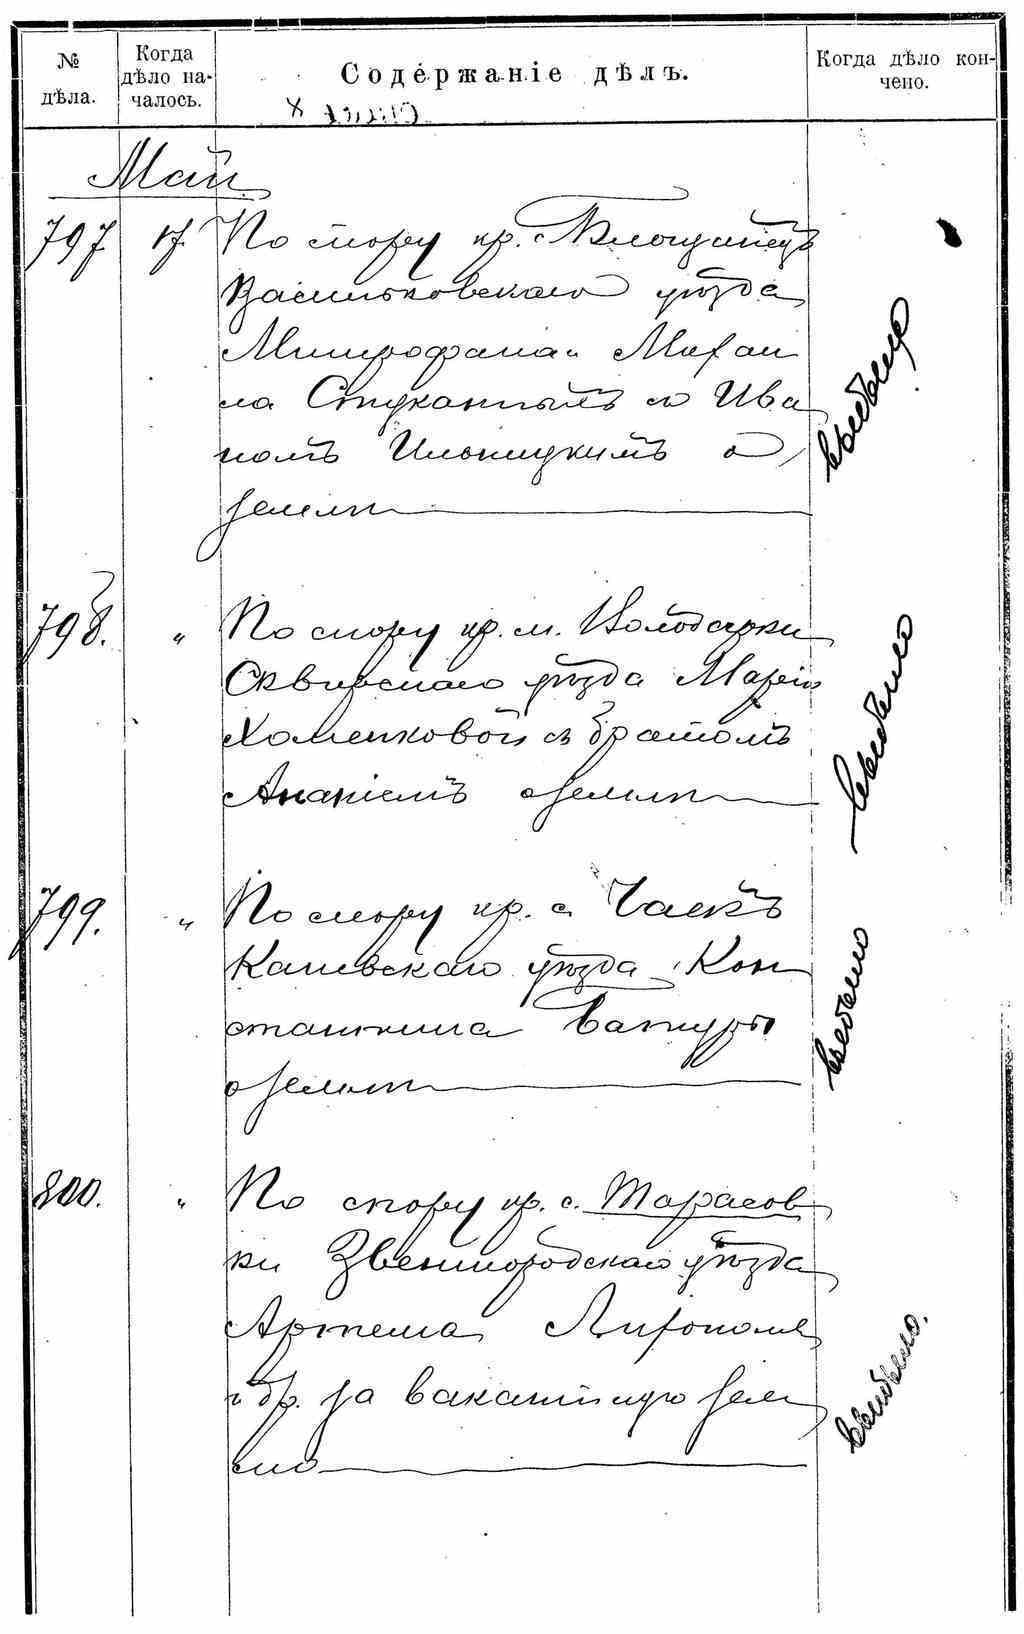 № дѣла.
Когда дѣло началось.
Содержаніе дѣлъ.
Когда дѣло кончено.
Май
797 17. По спору кр. с.
Васильковскаго уѣзда
Митрофана и Михаи
ла Стукантымъ съ Ива
номъ Ильницкимъ о
земли
798. „ По спору кр. м. Володарки
Сквирскаго уѣзда Маріи
Хоменковой съ братомъ
Ананіемъ о земли
799. „ По спору кр. с.
Каневскаго уѣзда Кон
стантина Бакуры
о земли
800. „ По спору кр. с. Тарасов
ки Звенигородскаго уѣзда
Артема
и др. за вакантную зем
лю